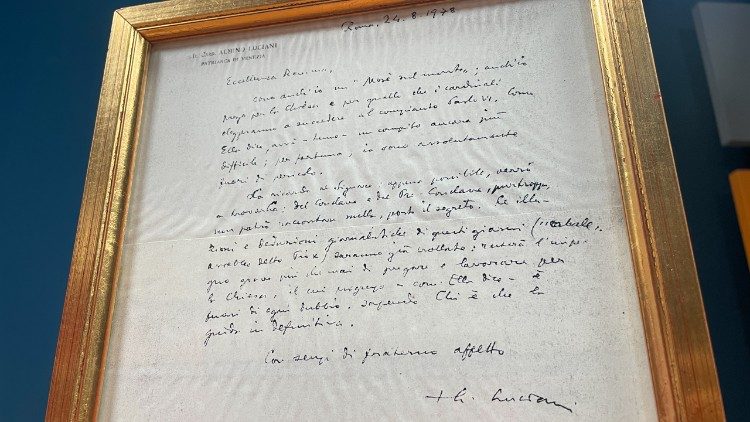 Roma, 24.8.1978
ALBINO LUCIANI
PATRIARCA DI VENEZIA
Eccellenza Rev.ma,
sono anch'io un "Mosè sul monte"; anch'io
prego per la Chiesa e per quello che i cardinali
eleggeranno a succedere al compianto Paolo VI. Come
Ella dice, avrà - temo - un compito ancora più
difficile; per fortuna, io sono assolutamente
fuori di pericolo.
La ricordo al Signore; appena possibile, verrò
a trovarla: del Conclave e del Pre-Conclave, purtroppo,
non potrò raccontar nulla, posto il segreto. Le illu-
zioni e deduzioni giornalistiche di questi giorni (
avrebbe detto Pio X) saranno già crollate; resterà l'impe-
gno grave più che mai di pregare e lavorare per
la Chiesa, il cui progresso - com'Ella dice - è
fuori di ogni dubbio, sapendo Chi è che la
guida in definitiva.
Con sensi di fraterno affetto
Luciani